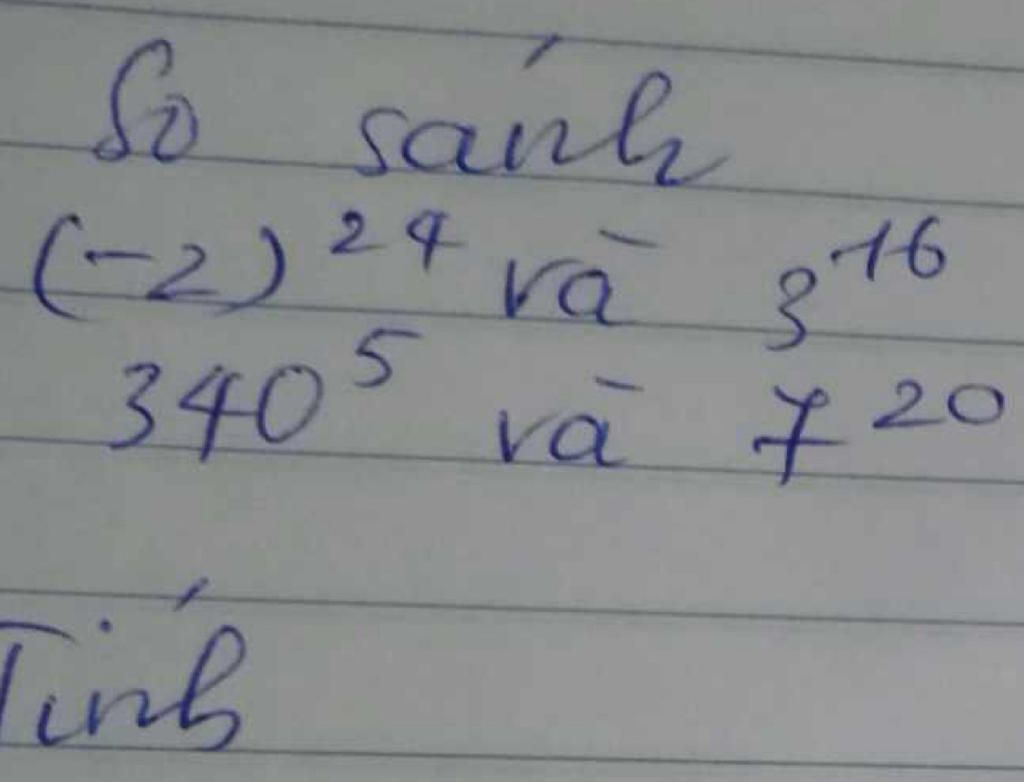 So sánh
(-2)²⁴ và 3¹⁶
340⁵ và 7²⁰
Tính